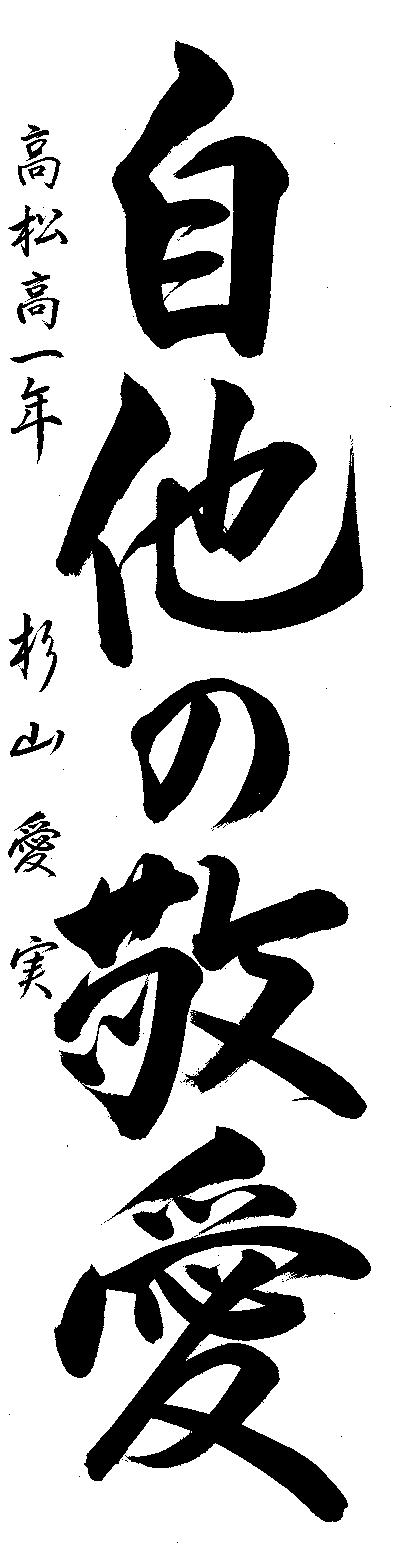 自他の敬愛
高松高一年 杉山愛実